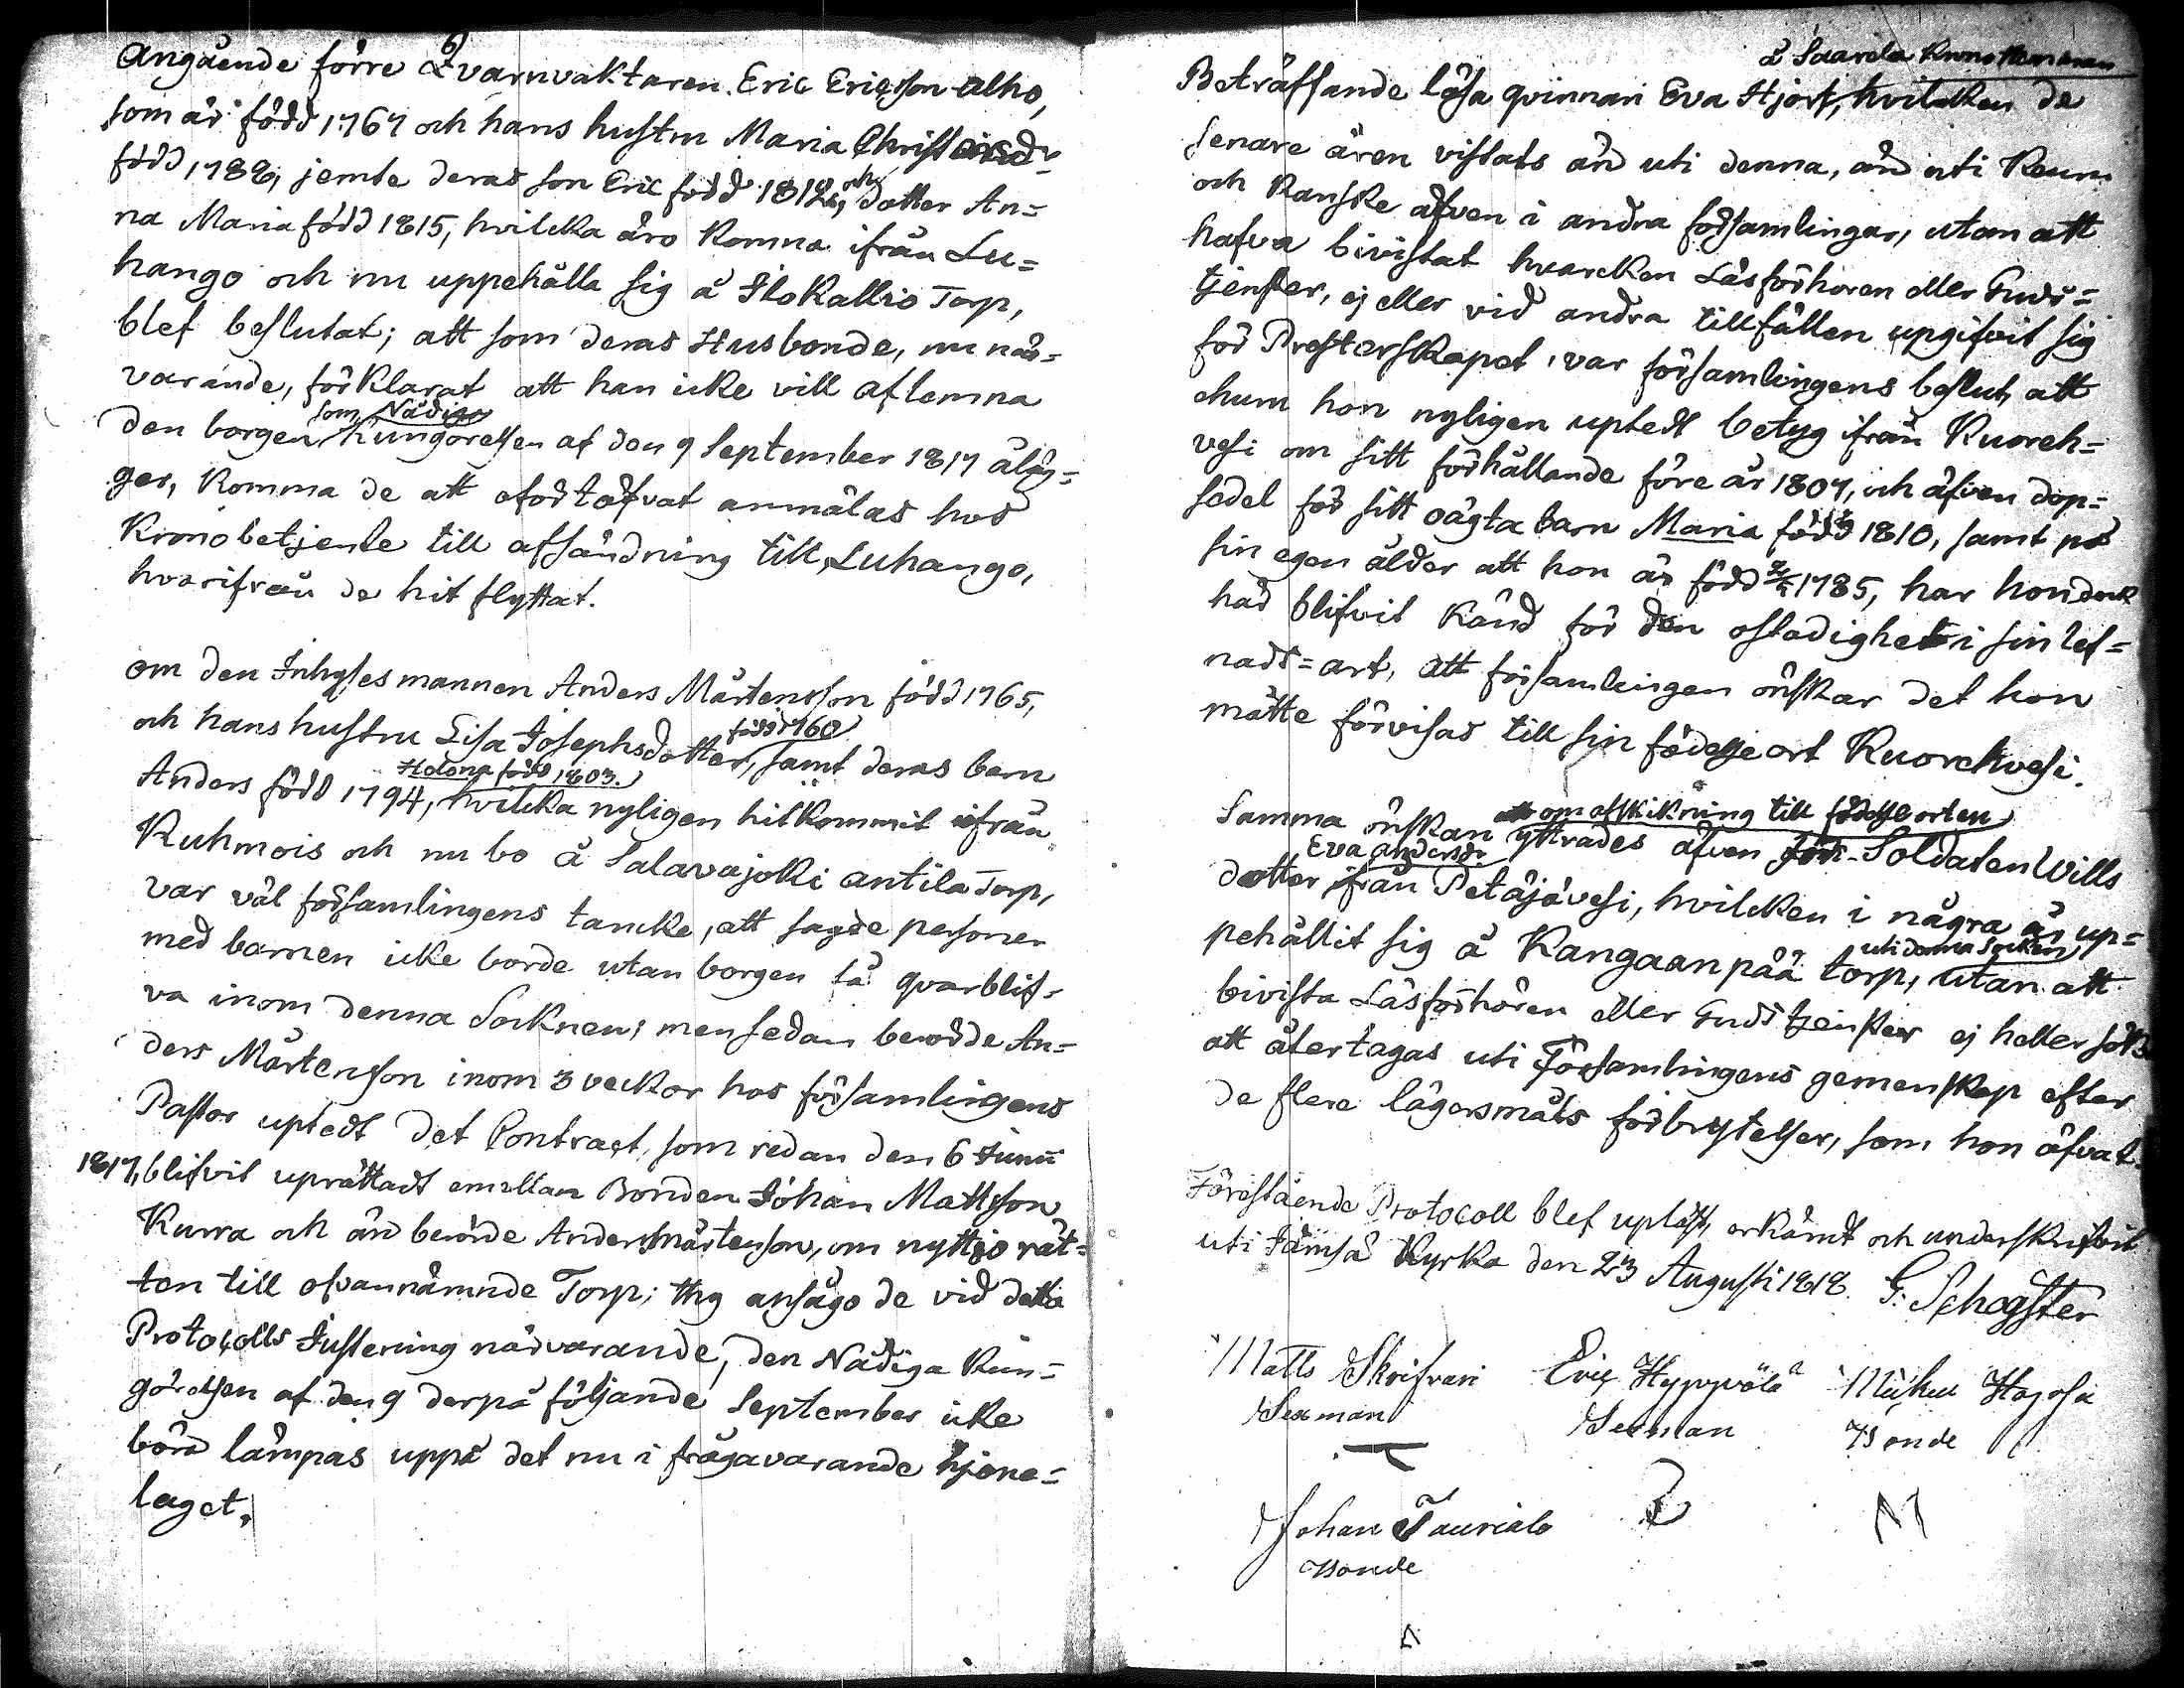 6
Angående förre Qvarnvaktaren Eric Ericsson Alho,
som är född 1767 och hans hustru Maria Christersdr
född 1788, jemte deras son Eric född 1812, och dotter An=
na Maria född 1815, hvilcka äro komna ifrån Lu=
hango och nu uppehålla sig å Ilokallio Torp,
blef beslutat; att som deras Husbonde, nu när=
varande, förklarat att han icke vill aflemna
den borgen som Nådiga Kungörelsen af den 9 September 1817 äläg=
ger, komma de att ofortöfvat anmälas hos
Kronobetjente till afsändning till Luhango,
hvarifrån de hit flyttat.
om den Inhyses mannen Anders Mårtensson född 1765,
och hans hustru Lisa Josephsdotter, född 1760 samt deras barn
Anders född 1794, Helena född 1803. hvilcka nyligen hitkommit ifrån
Kuhmois och nu bo å Salavajoki Antila Torp,
var väl församlingens tancke, att sagde personer
med barnen icke borde utan borgen få qvarblif=
va inom denna Socknen; men sedan berörde An=
ders Mårtensson inom 3 veckor hos församlingens
Pastor uptedt det Contract, som redan den 6 Junii
1817, blifvit uprättadt emellan Bonden Johan Mattsson
Kurra och än berörde Anders Mårtensson, om nyttjo rät=
ten till ofvannämnde Torp; thy ansågo de vid detta
Protocolls Justering närvarande, den Nådiga Kun=
görelsen af den 9 derpå följande September icke
böra lämpas uppå det nu i frågavarande hjone=
laget.
å Saarela Kronohemman
Beträffande lösa qvinnan Eva Hjort, hvilcken de
senare åren vistats än uti denna, än uti Keuru
och kanske äfven i andra församlingar, utan att
hafva bivistat hvarcken Läsförhören eller Guds=
tjenster, ej eller vid andra tillfällen upgifvit sig
för Presterskapet, var församlingens beslut, att
ehuru hon nyligen uptedt betyg ifrån Kuoreh=
vesi om sitt förhållande före år 1807, och äfven dop=
sedel för sitt oägta barn Maria född 1810, samt på
sin egen ålder att hon är född 1785, har hon dock
här blifvit känd för den ostadighet i sin lef=
nads=art, att församlingen önskar det hon
måtte förvisas till sin födelseort Kuorehvesi.
Samma önskan om afskickning till födelseorten yttrades äfven för Soldaten Wills
dotter Eva Andersdr ifrån Petäjävesi, hvilcken i några år up=
pehållit sig å Kangaanpää torp, uti denna Socken, utan att
bivista Läsförhören eller Gudstjenster ej heller sökt
att återtagas uti Församlingens gemenskap efter
de flera lägersmåls förbrytelser, som hon öfvat.
Förestående Protocoll blef uplöst, erkändt och underskrifvit
uti Jämsä Kyrka den 23 Augusti 1818. G. Schogster
Matts Skrifvari Eric Hyppölä Michel Hagosa
Sexman Sexman Bonde
Johan Tauriala
Bonde